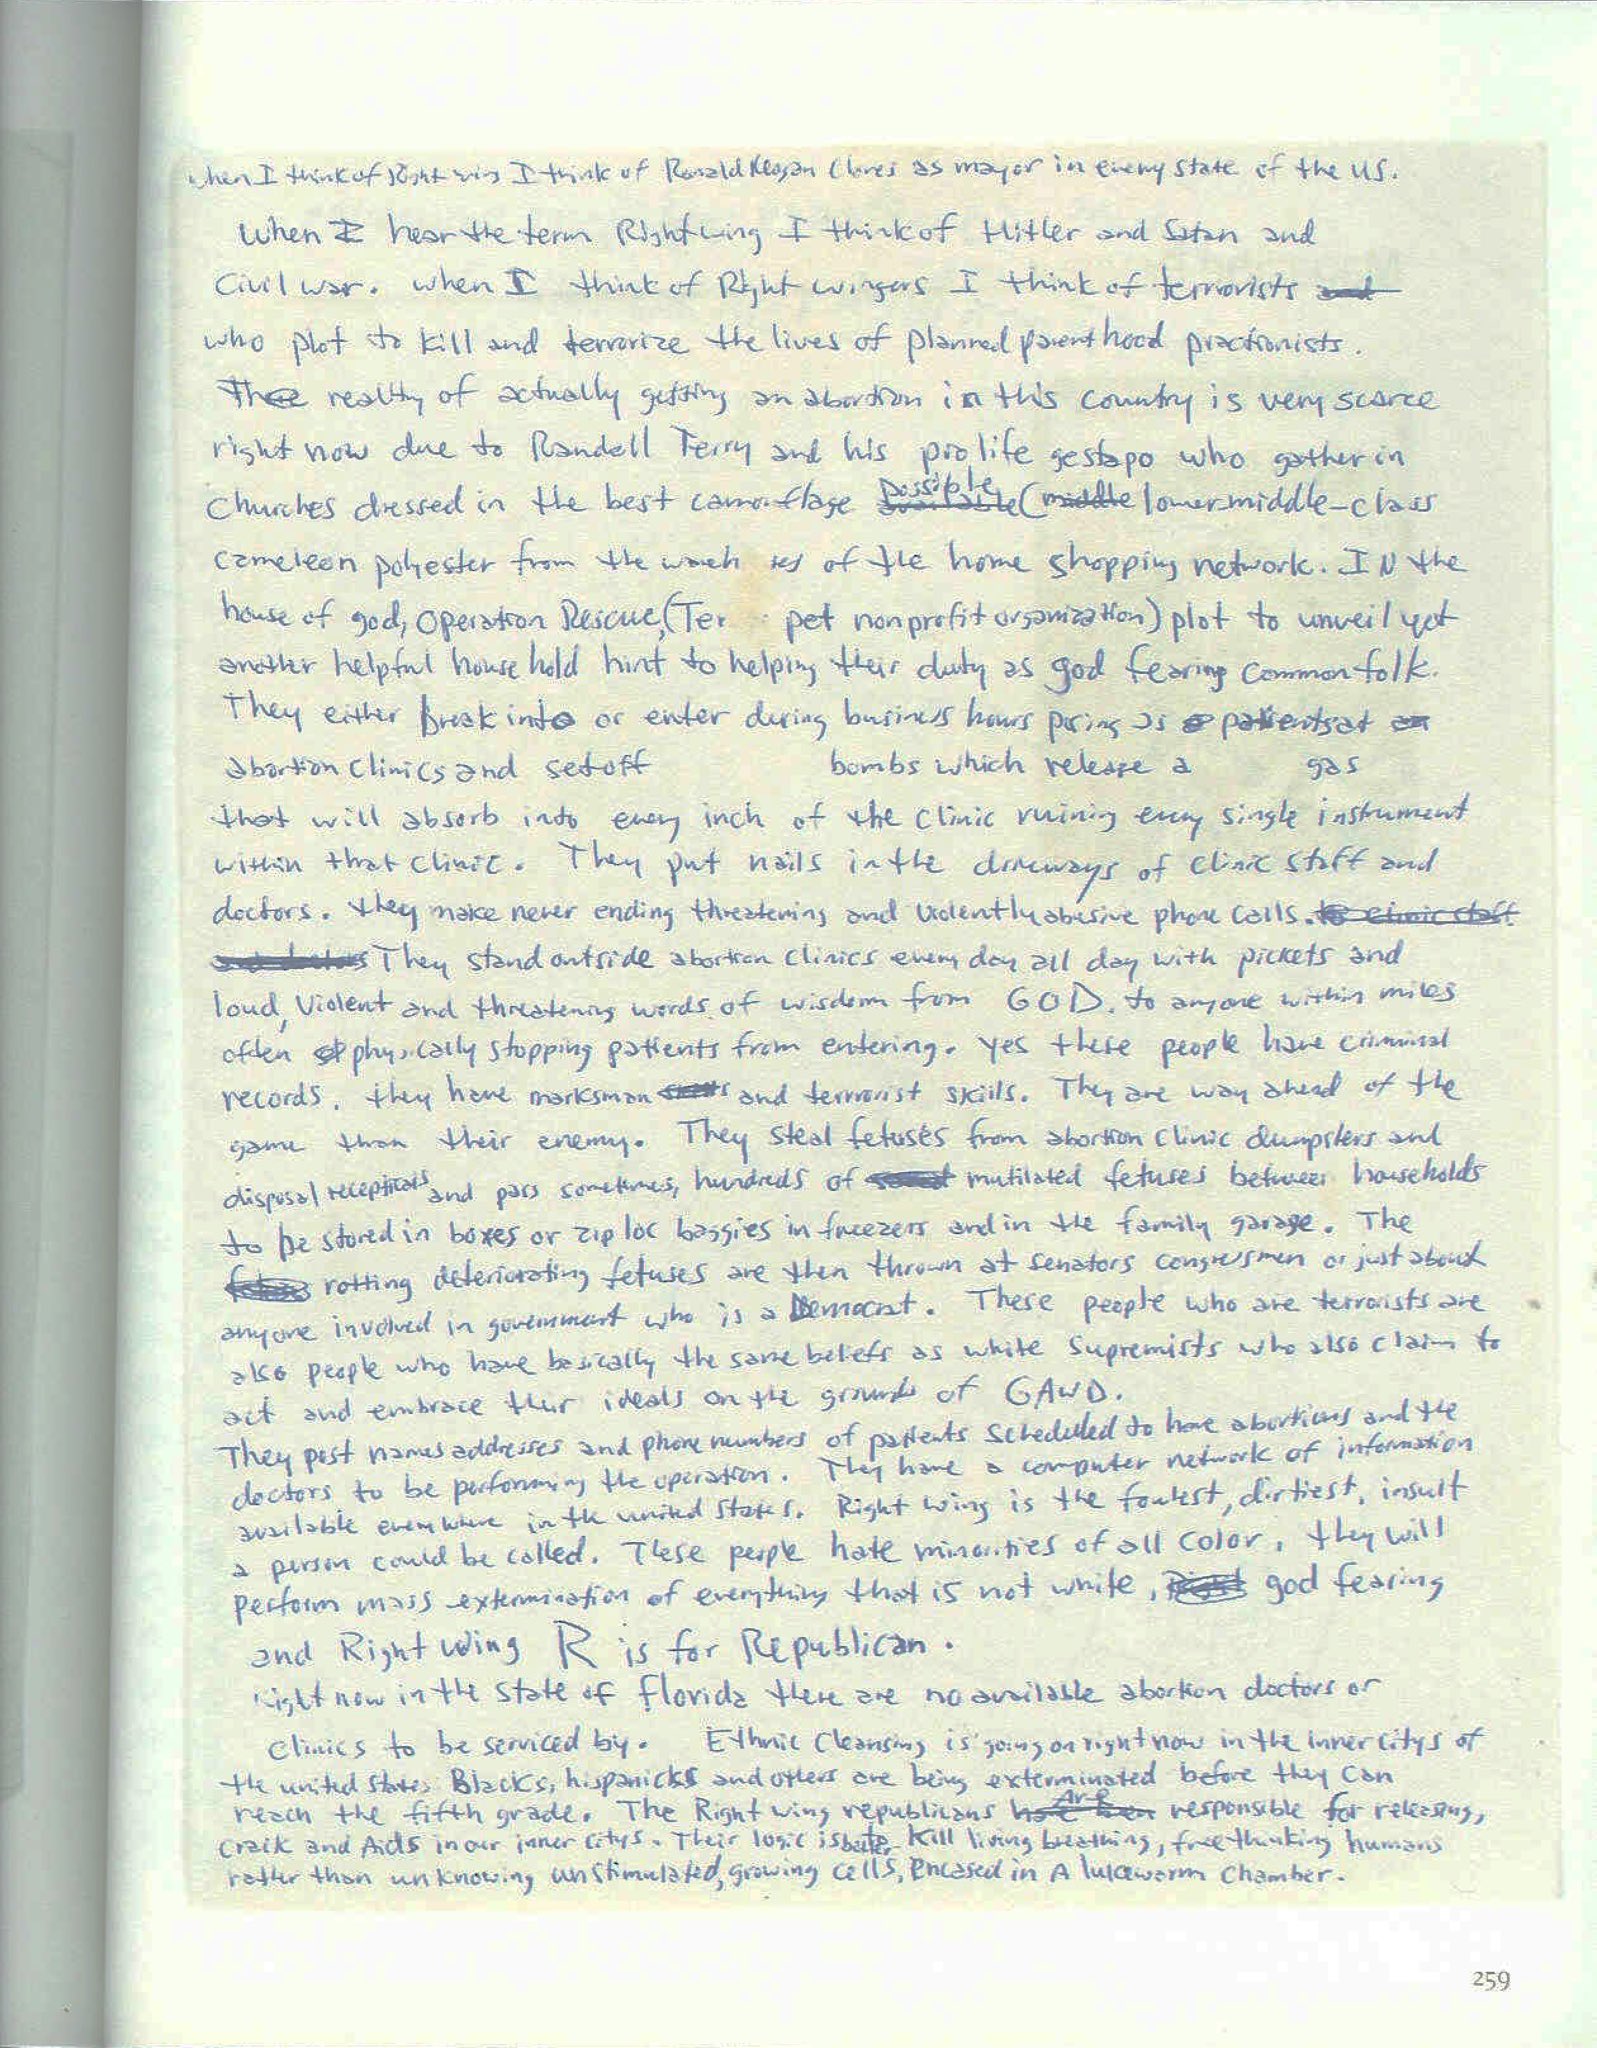 when I think of Right wing I think of Ronald Reagan Clones as mayor in every state of the US.
When I hear the term Right wing I think of Hitler and Satan and
Civil war. when I think of Right wingers I think of terrorists and
who plot to kill and terrorize the lives of planned parent hood practionists.
The reality of actually getting an abortion in this country is very scarce
right now due to Randell Terry and his prolife gestapo who gather in
Churches dressed in the best camouflage available possible (middle lower middle-class
cameleon polyester from the of the home shopping network. IN the
house of god, Operation Rescue, (Ter pet nonprofit organization) plot to unveil yet
another helpful house hold hint to helping their duty as god fearing common folk.
They either break into or enter during business hours posing as a patients at an
abortion clinics and set off bombs which release a gas
that will absorb into every inch of the clinic ruining every single instrument
within that clinic. They put nails in the driveways of clinic staff and
doctors. they make never ending threatening and violently abusive phone calls. to clinic staff
and doctors They stand outside abortion clinics every day all day with pickets and
loud, violent and threatening words of wisdom from GOD. to anyone within miles
often physically stopping patients from entering. yes these people have criminal
records. they have marksman skills and terrorist skills. They are way ahead of the
game than their enemy. They steal fetuses from abortion clinic dumpsters and
disposal recepticals and pass sometimes, hundreds of mutilated fetuses between households
to be stored in boxes or zip loc baggies in freezers and in the family garage. The
rotting deteriorating fetuses are then thrown at senators congressmen or just about
anyone involved in government who is a Democrat. These people who are terrorists are
also people who have basically the same beliefs as white Supremists who also claim to
act and embrace their ideals on the grounds of GAWD.
They post names addresses and phone numbers of patients scheduled to have abortions and the
doctors to be performing the operation. They have a computer network of information
available everywhere in the united states. Right wing is the fowlest, dirtiest, insult
a person could be called. These people hate minorities of all color. they will
perform mass extermination of everything that is not white, god fearing
and Right wing R is for Republican.
Right now in the state of florida there are no available abortion doctors or
clinics to be serviced by. Ethnic Cleansing is going on right now in the inner citys of
the united states Blacks, hispanicks and others are being exterminated before they can
reach the fifth grade. The Right wing republicans have been Are responsible for releasing,
crack and Aids in our inner citys. Their logic is better to kill living breathing, free thinking humans
rather than unknowing unstimulated, growing cells, encased in A lukewarm chamber.
259